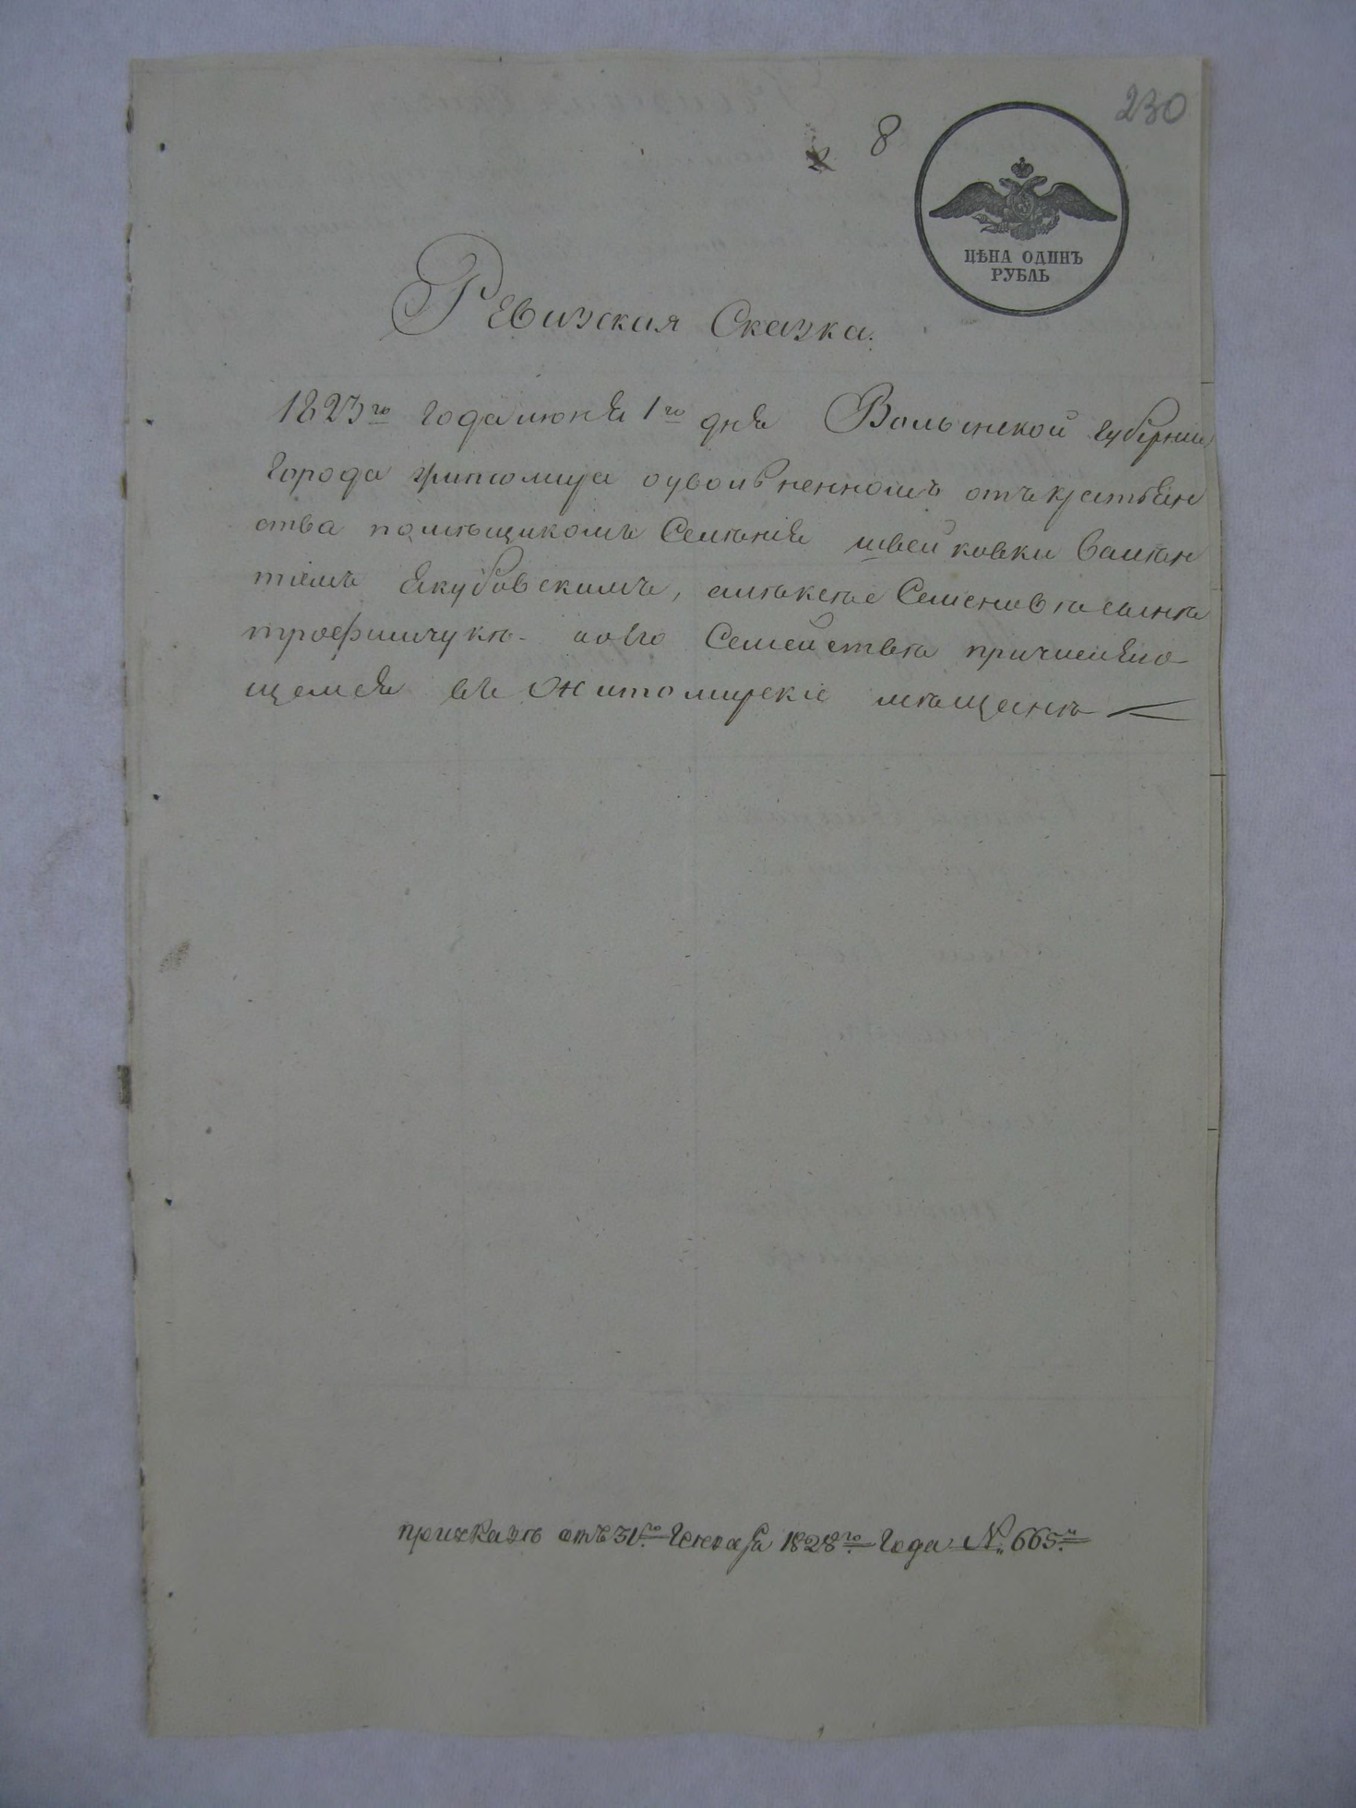 230
8
ЦѢНА ОДИНЪ
РУБЛЬ
Ревизская Сказка.
1823го года июня 1го дня Волынской губернии
города Житомира оуволненномъ отъ крестьян
ства помѣщикомъ Селѣнія швейковки Валѣн
тiемъ Якубовскимъ, Алѣксѣе Семенивѣ сынѣ
трофимчукѣ - аовго Семействѣ причисляю
щемся въ Житомирскiе мѣщанѣ
приуказѣ отъ 31го Генваря 1828го года №. 665.